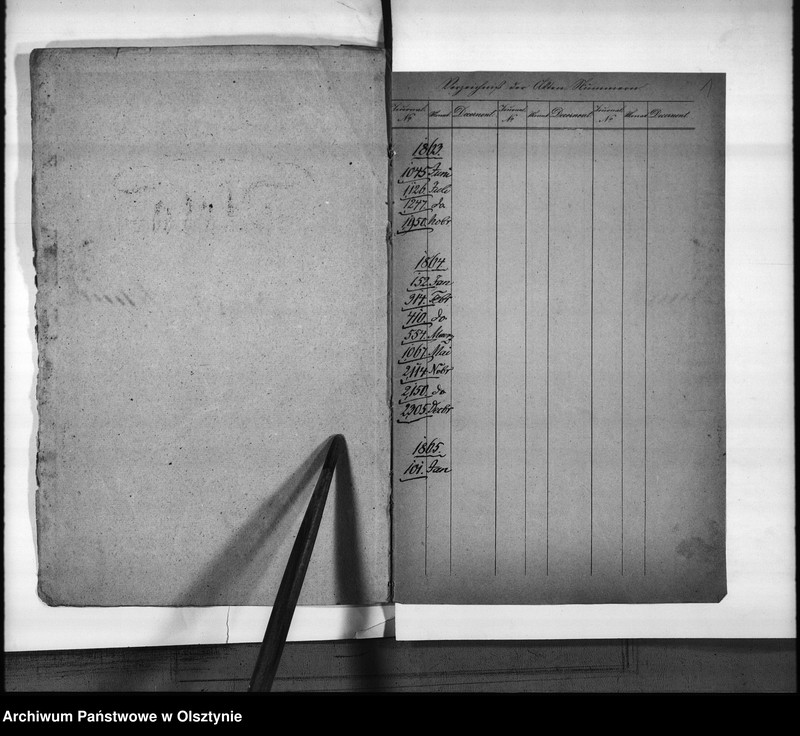 Verzeichniß der Alten Nummern
Journal No Monat Document Journal No Monat Document Journal No Monat Document
1863.
1045. Juni
1126. Juli
1247. do
1950. Nobr
1864.
152. Jan
314. Febr
410. do
554. Maerz
1067. Mai
2114. Nobr
2150. do
2305. Decbr
1865.
101. Jan
Archiwum Państwowe w Olsztynie